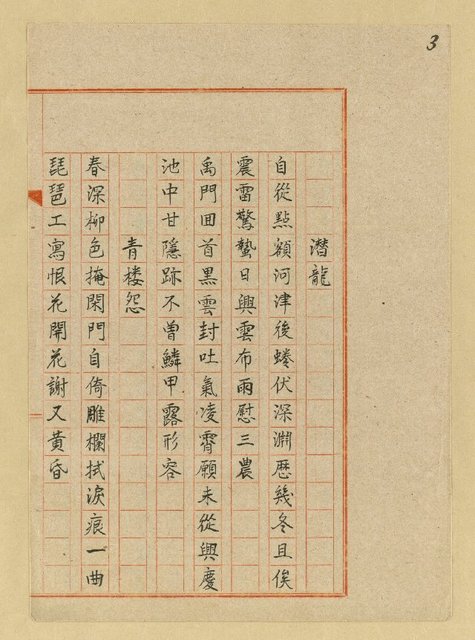 3
潛龍
自從點額河津後蜷伏深淵歴幾冬且俟
震雷驚蟄日興雲布雨慰三農
禹門回首黒雲封吐氣凌霄願未從興慶
池中甘隱跡不曽鱗甲露形容
青楼怨
春深柳色掩閑門自倚雕欄拭淚痕一曲
琵琶工寫恨花開花謝又黃昏